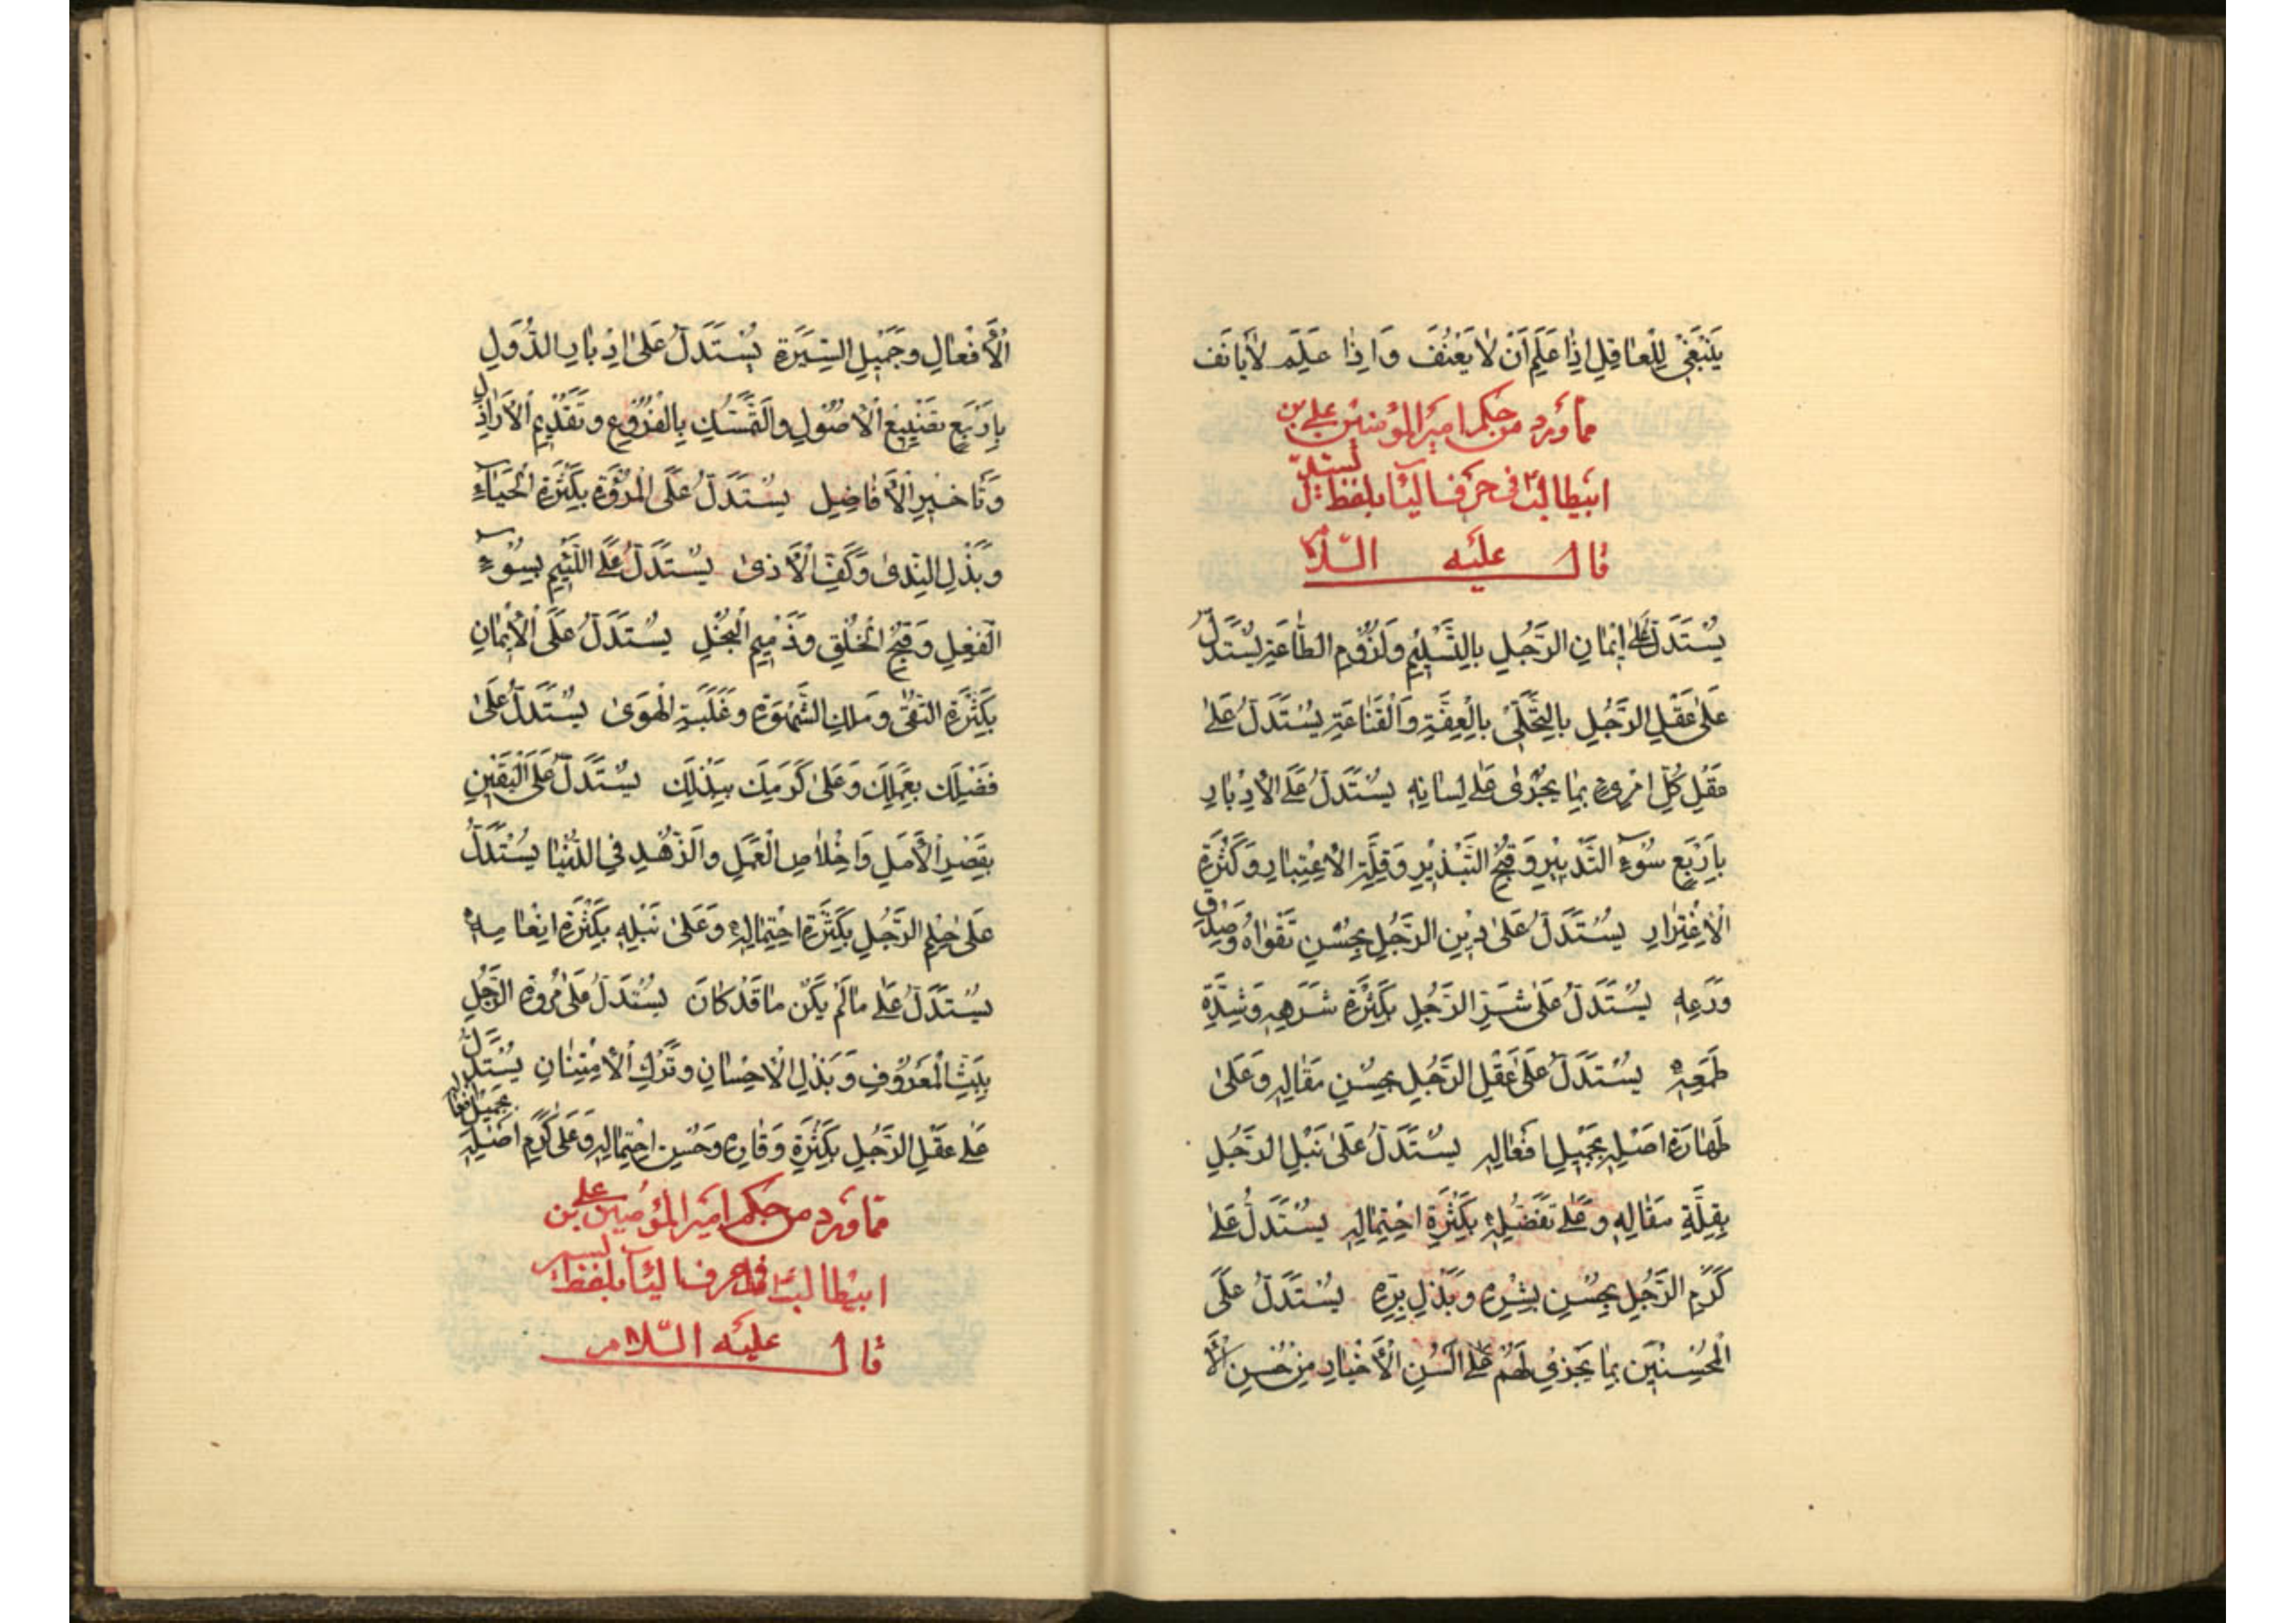 يَنْبَغي لِلْعاقِلِ اِذا عَلَّمَ اَنْ لا يَعْنُفَ وَاِذا عُلِّمَ لا يَأنَف
مما ورد من حكم امير المؤمنين علي بن
ابيطالب في حرف الياء بلفظ يستدل
قال عليه السلام
يُسْتَدَلُّ عَلى اِيْمانِ الرَّجُلِ بِالتَّسْليْمِ وَلُزُوْمِ الطّاعَةِ يُسْتَدَلُّ
عَلى عَقْلِ الرَّجُلِ بِالتَّحَلّيْ بِالْعِفَّةِ وَالْقَناعَةِ يُسْتَدَلُّ عَلى
عَقْلِ كُلِّ امْرِءٍ بِما يَجْرْي عَلى لِسانِهِ يُسْتَدَلُّ عَلَى الْاِدْبارِ
بِاَرْبَعٍ سُوْءِ التَّدْبِيْرِ وَقُبْحِ التَّبْذِيْرِ وَقِلَّةِ الْاِعْتِبارِ وَكَثْرَةِ
الْاِغْتِرارِ يُسْتَدَلُّ عَلى دِيْنِ الرَّجُلِ بِحُسْنِ تَقْواهُ وَصِدْقِ
وَرَعِهِ يُسْتَدَلُّ عَلى شَرِّ الرَّجُلِ بِكَثْرَةِ شَرَهِهِ وَشِدَّةِ
طَمَعِهِ يُسْتَدَلُّ عَلى عَقْلِ الرَّجُلِ بِحُسْنِ مَقالِهِ وَعَلى
طَهارَةِ اَصْلِهِ بِجَمِيْلِ اَفْعالِهِ يُسْتَدَلُّ عَلى نُبْلِ الرَّجُلِ
بِقِلَّةِ مَقالِهِ وَعَلى تَفَضُّلِهِ بِكَثْرَةِ احْتِمالِهِ يُسْتَدَلُّ عَلى
كَرَمِ الرَّجُلِ بِحُسْنِ بِشْرِهِ وَبَذْلِ بِرِّهِ يُسْتَدَلُّ عَلَى
الْمُحْسِنِيْنَ بِما يَجْرِيْ لَهُمْ عَلى اَلْسُنِ الْاَخْيارِ مِنْ حُسْنِ
الْاَفْعالِ وَجَمِيْلِ السِّيْرَةِ يُسْتَدَلُّ عَلى اِدْبارِ الدُّوَلِ
بِاَرْبَعٍ تَضْيِيْعِ الْاُصُوْلِ وَالتَّمَسُّكِ بِالْفُرُوْعِ وَتَقْدِيْمِ الْاَراذِلِ
وَتَاْخِيْرِ الْاَفاضِلِ يُسْتَدَلُّ عَلَى الْمُرُوَّةِ بِكَثْرَةِ الْحَياءِ
وَبَذْلِ النَّدى وَكَفِّ الْاَذى يُسْتَدَلُّ عَلَى اللَّئِيْمِ بِسُوْءِ
الْفِعْلِ وَقُبْحِ الْخُلْقِ وَذَمِيْمِ الْبُخْلِ يُسْتَدَلُّ عَلَى الْاِيْمانِ
بِكَثْرَةِ التُّقى وَمَلْكِ الشَّهْوَةِ وَغَلَبَةِ الْهَوى يُسْتَدَلُّ عَلى
فَضْلِكَ بِعَمَلِكَ وَعَلى كَرَمِكَ بِبَذْلِكَ يُسْتَدَلُّ عَلَى الْيَقِيْنِ
بِقَصْرِ الْاَمَلِ وَاِخْلاصِ الْعَمَلِ وَالزُّهْدِ فِي الدُّنْيا يُسْتَدَلُّ
عَلى حِلْمِ الرَّجُلِ بِكَثْرَةِ احْتِمالِهِ وَعَلى نُبْلِهِ بِكَثْرَةِ اِنْعامِهِ
يُسْتَدَلُّ عَلى ما لَمْ يَكُنْ بِما قَدْ كانَ يُسْتَدَلُّ عَلى مُرُوَّةِ الرَّجُلِ
بِبَثِّ الْمَعْرُوْفِ وَبَذْلِ الْاِحْسانِ وَتَرْكِ الْاِمْتِنانِ يُسْتَدَلُّ
عَلى عَقْلِ الرَّجُلِ بِكَثْرَةِ وَقارِهِ وَحُسْنِ احْتِمالِهِ وَعَلى كَرَمِ اَصْلِهِ بجميل افعاله
مما ورد من حكم امير المؤمنين علي بن
ابيطالب في حرف الياء بلفظ يسير
قال عليه السلام